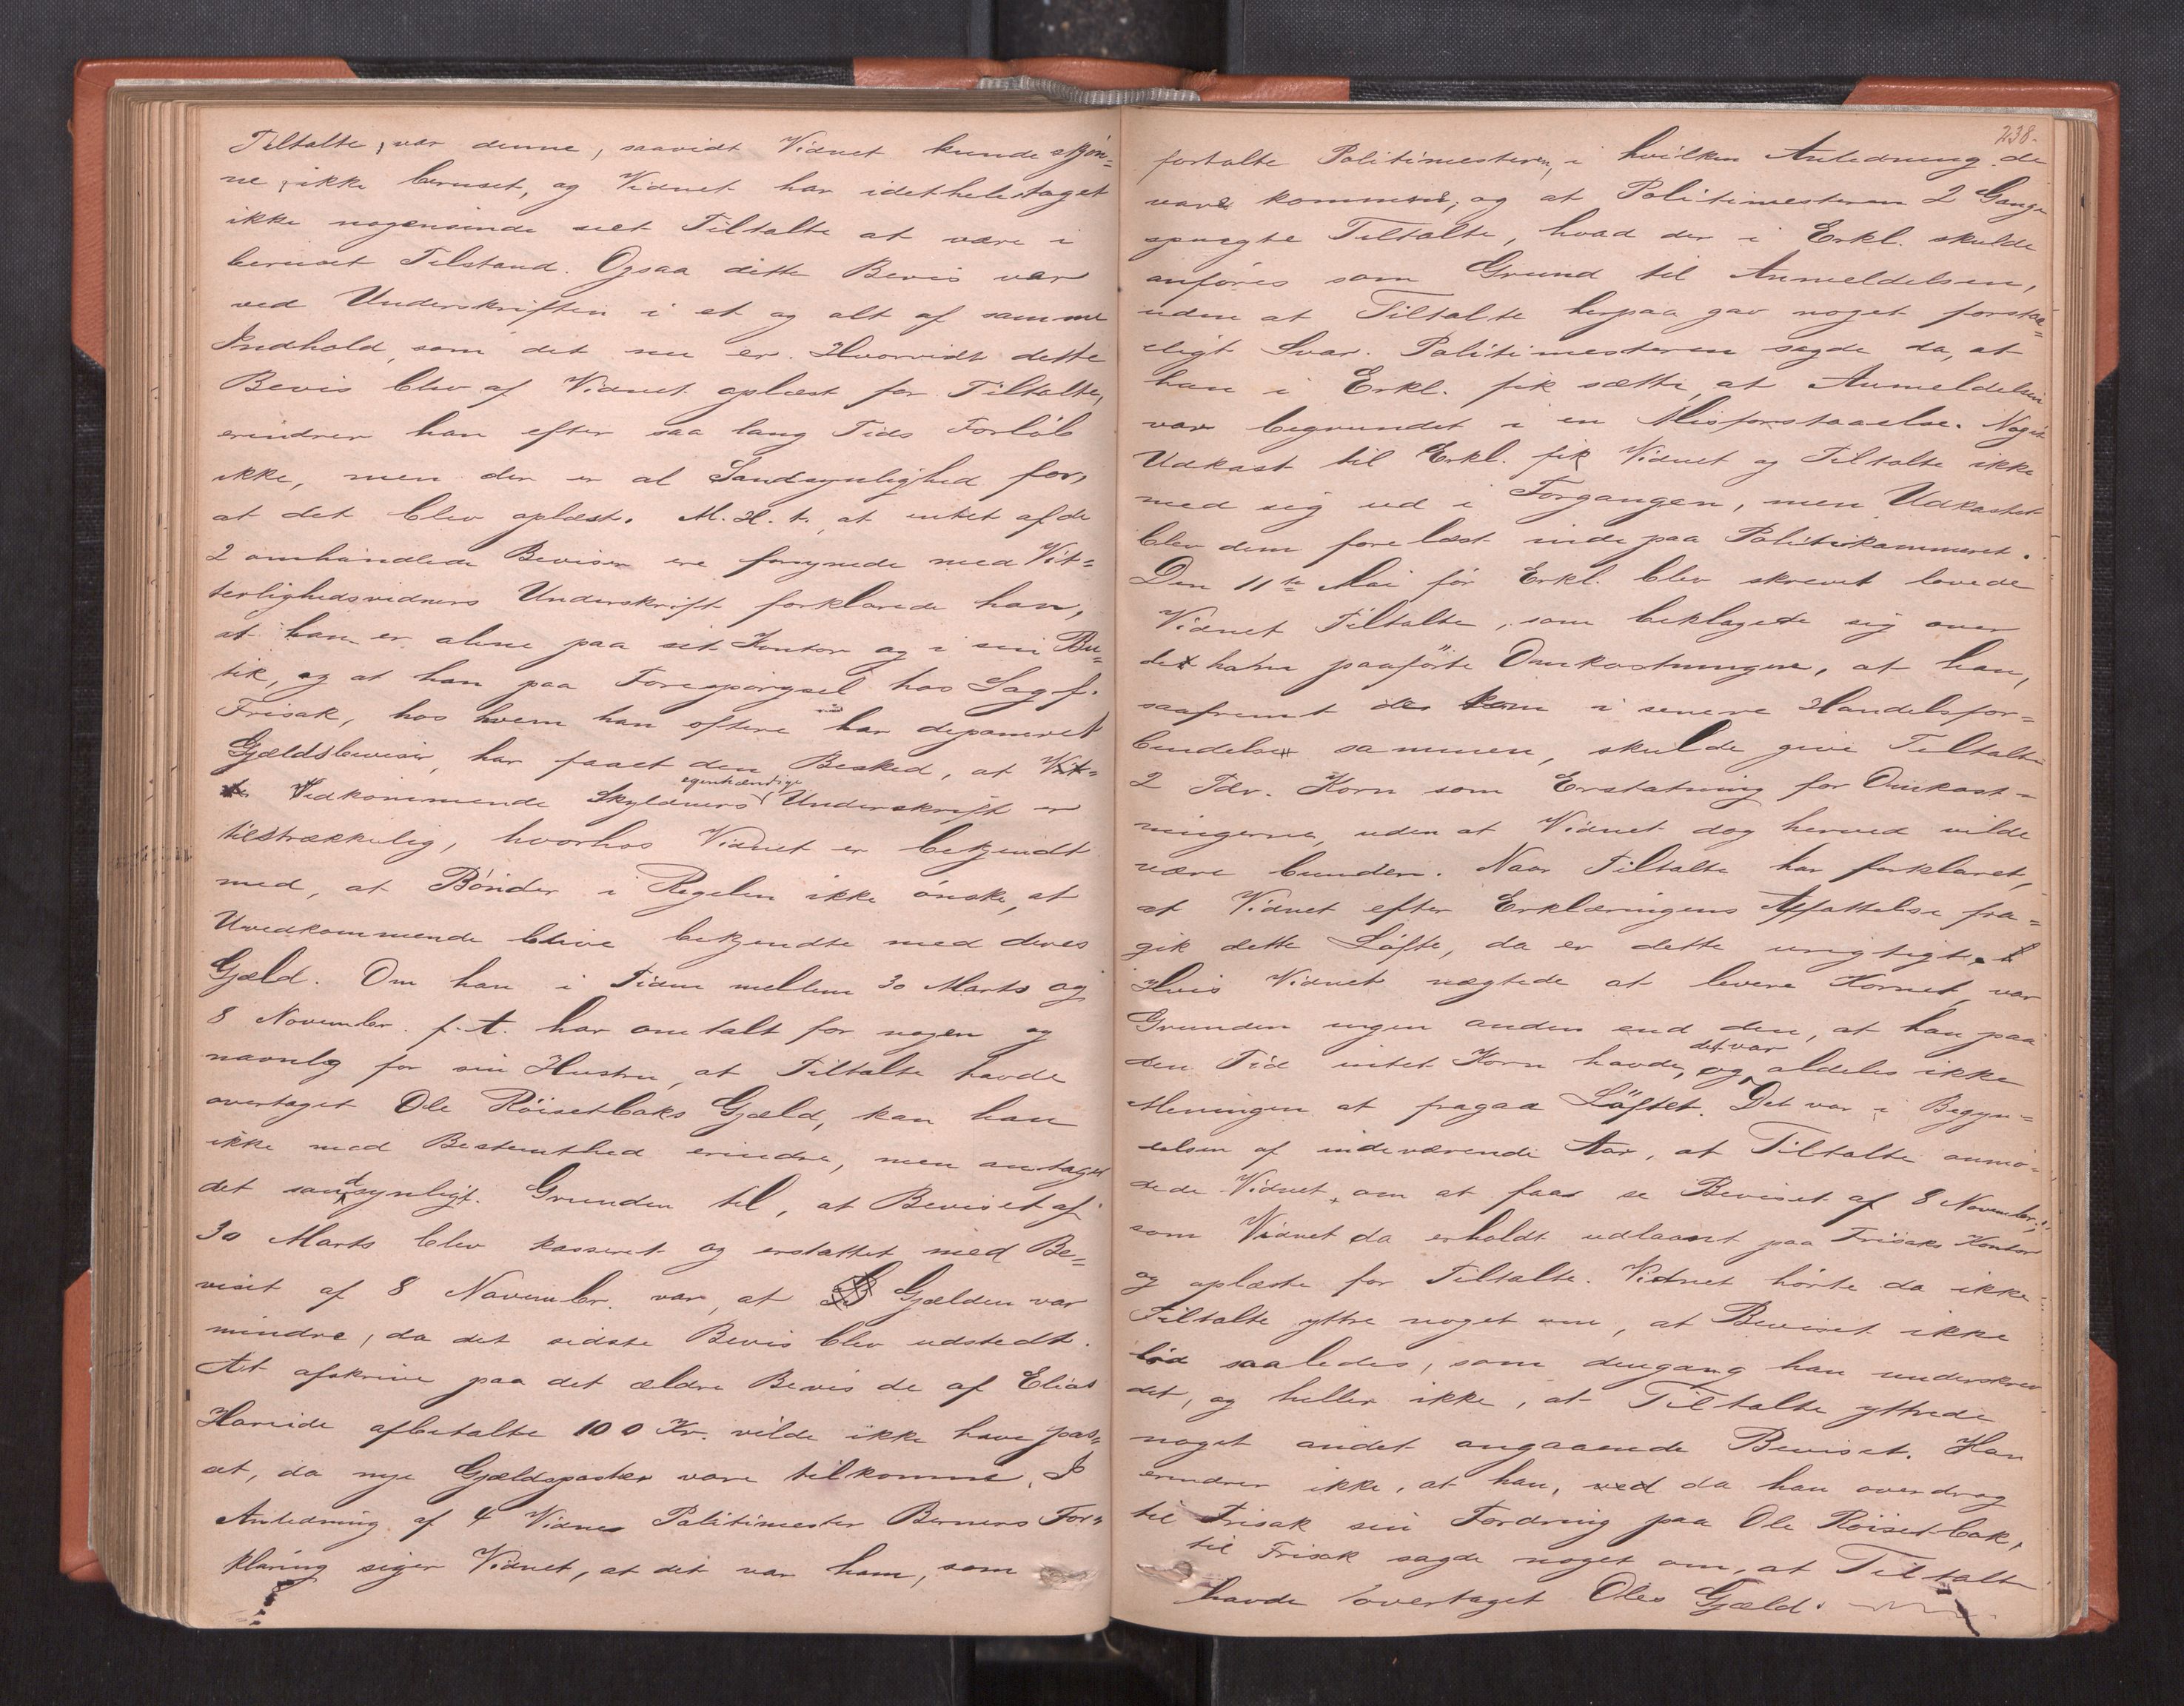 Tiltalte, var denne, saavidt Vidnet kunde skjøn=
ne, ikke beruset, og Vidnet har idethele taget
ikke nogensinde seet Tiltalte at være i
beruset Tilstand. Ogsaa dette Bevis var
ved Underskriften i et og alt af samme
Indhold, som det nu er. Hvorvidt dette
Bevis blev af Vidnet oplæst for Tiltalte,
erindrer han efter saa lang Tids Forløb
ikke, men der er al Sandsynlighed for,
at det blev oplæst. M. H. t. at intet af de
2 omhandlede Beviser ere forsynede med Vit=
terlighedsvidners Underskrift forklarede han,
at han er alene paa sit Kontor og i sin Bu=
tik, og at han paa Forespørgsel hos Sagf.
Frisak, hos hvem han oftere har deponeret
Gjældsbeviser, har faaet den Besked, at
Vedkommende Skyldners egenhændige Underskrift er
tilstrækkelig, hvorhos Vidnet er bekjendt
med, at Bønder i Regelen ikke ønske, at
Uvedkommende blive bekjendte med deres
Gjæld. Om han i Tiden mellem 30 Marts og
8 November f. A. har omtalt for nogen og
navnlig for sin Hustru, at Tiltalte havde
overtaget Ole Røisetbaks Gjæld, kan han
ikke med Bestemthed erindre, men antager
det sandsynligt. Grunden til, at Beviset af
30 Marts blev kasseret og erstattet med Be=
viset af 8 November. var, at Gjælden var
mindre, da det sidste Bevis blev udstedt.
At afskrive paa det ældre Bevis de af Elias
Hareide afbetalte 100 Kr. vilde ikke have pas=
set, da nye Gjældsposter vare tilkomne. I
Anledning af 4 Vidnes Politimester Berners For=
klaring siger Vidnet, at det var ham, som
238.
fortalte Politimesteren, i hvilken Anledning de
vare komne, og at Politimesteren 2 Gange
spurgte Tiltalte, hvad der i Erkl. skulde
anføres som Grund til Anmeldelsen,
uden at Tiltalte herpaa gav noget forstaa=
eligt Svar. Politimesteren sagde da, at
han i Erkl. fik sætte, at Anmeldelsen
var begrundet i en Misforstaaelse. Noget
Udkast til Erkl. fik Vidnet og Tiltalte ikke
med sig ud i Forgangen, men Udkastet
blev dem forelæst inde paa Politikammeret.
Den 11te Mai før Erkl. blev skrevet lovede
Vidnet Tiltalte, som beklagede sig over
de ham paaførte Omkostninger, at han,
saafremt de kom i senere Handelsfor=
bindelse sammen, skulde give Tiltalte
2 Tdr. Korn som Erstatning for Omkost=
ningerne, uden at Vidnet dog herved vilde
være bunden. Naar Tiltalte har forklaret,
at Vidnet efter Erklæringens Affattelse fra=
gik dette Løfte, da er dette urigtigt.
Hvis Vidnet nægtede at levere Kornet, var
Grunden ingen anden end den, at han paa
den Tid intet Korn havde, og det var aldeles ikke
Meningen at fragaa Løftet. Det var i Begyn=
delsen af indeværende Aar, at Tiltalte anmo=
dede Vidnet om at faa se Beviset af 8 November,
som Vidnet da erholdt udlaant paa Frisaks Kontor
og oplæste for Tiltalte. Vidnet hørte da ikke
Tiltalte yttre noget om, at Beviset ikke
lød saaledes, som dengang han underskrev
det, og heller ikke, at Tiltalte yttrede
noget andet angaaende Beviset. Han
erindrer ikke, at han, ved da han overdrog
til Frisak sin Fordring paa Ole Røisetbak,
til Frisak sagde noget om, at Tiltalte
havde overtaget Oles Gjæld.